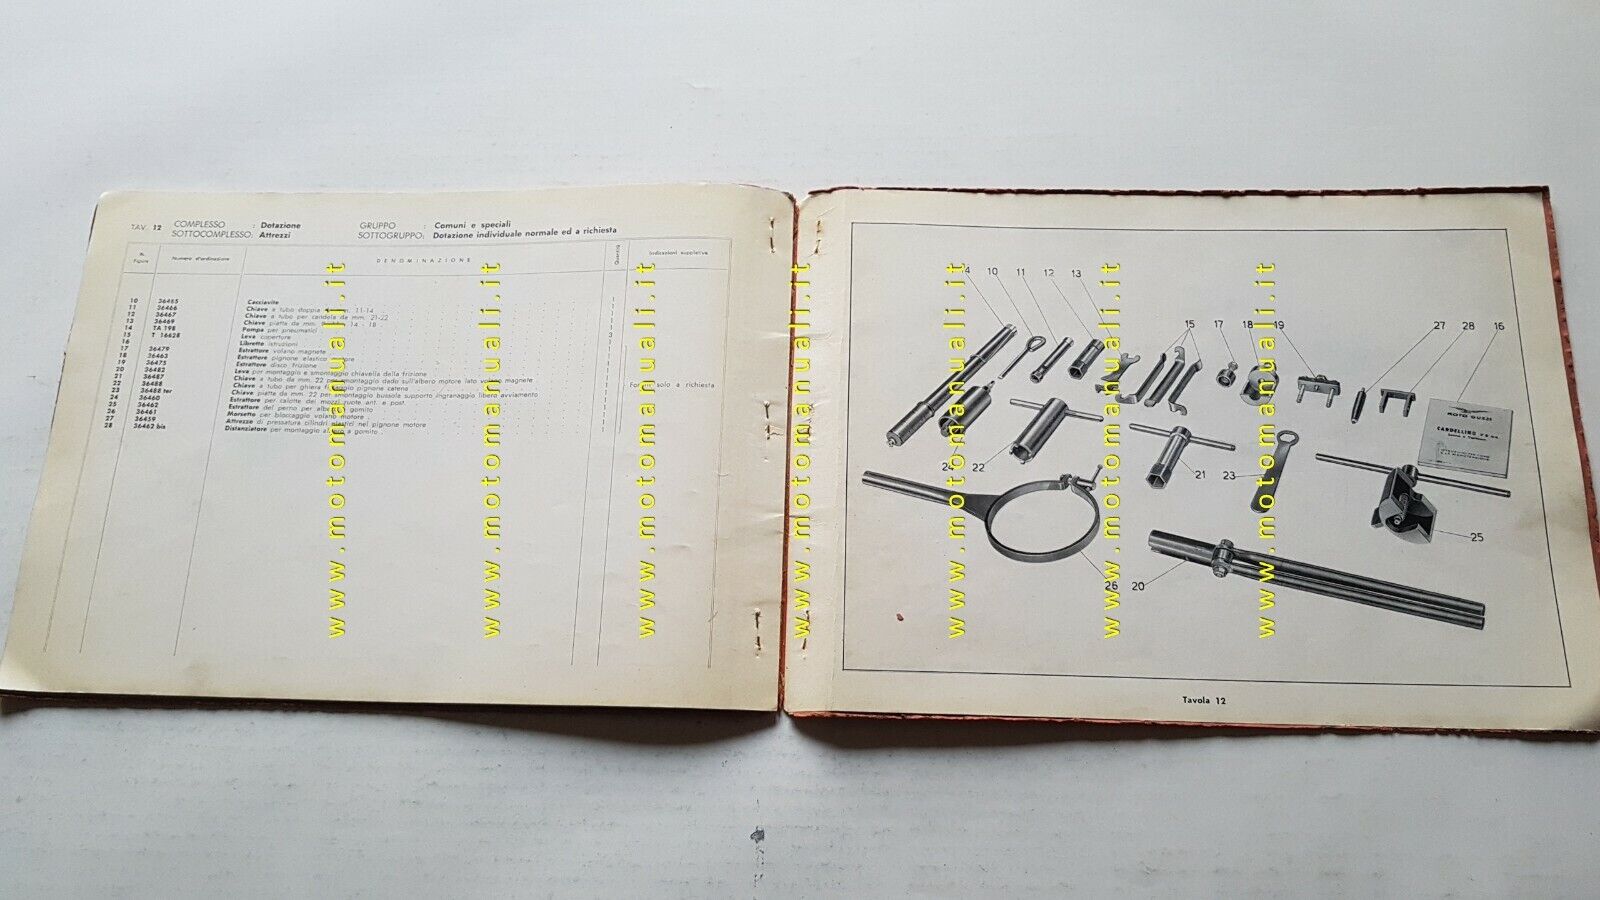 TAV. 12 COMPLESSO : Dotazione GRUPPO : Comuni e speciali
SOTTOCOMPLESSO: Attrezzi SOTTOGRUPPO: Dotazione individuale normale ed a richiesta
N. Figura Numero d'ordinazione DENOMINAZIONE Quantità Indicazioni suppletive
10 36485 Cacciavite 1
11 36466 Chiave a tubo doppia mm. 11-14 1
12 36467 Chiave a tubo per candela da mm. 21-22 1
13 36469 Chiave piatta da mm. 14 - 18 1
14 TA 198 Pompa per pneumatici 1
15 T 16628 Leva coperture 3
16 Libretto istruzioni 1
17 36479 Estrattore volano magnete 1
18 36463 Estrattore pignone elastico motore 1
19 36475 Estrattore disco frizione 1
20 36482 Leva per montaggio e smontaggio chiavella della frizione 1
21 36487 Chiave a tubo da mm. 22 per smontaggio dado sull'albero motore lato volano magnete 1
22 36488 Chiave a tubo per ghiera fissaggio pignone catena 1
23 36488 ter Chiave piatta da mm. 22 per smontaggio bussola supporto ingranaggio libero avviamento 1
24 36460 Estrattore per calotte dei mozzi ruote ant. e post. 1
25 36462 Estrattore del perno per albero a gomito 1
26 36461 Morsetto per bloccaggio volano motore 1
27 36459 Attrezzo di pressatura cilindri elastici nel pignone motore 1
28 36462 bis Distanziatore per montaggio albero a gomito 1
solo a richiesta
14 10 11 12 13 15 17 18 19 27 28 16
MOTO GUZZI
CARDELLINO
24 22 21 23 25
26 20
Tavola 12
www.motomanuali.it
www.motomanuali.it
www.motomanuali.it
www.motomanuali.it
www.motomanuali.it
www.motomanuali.it
www.motomanuali.it